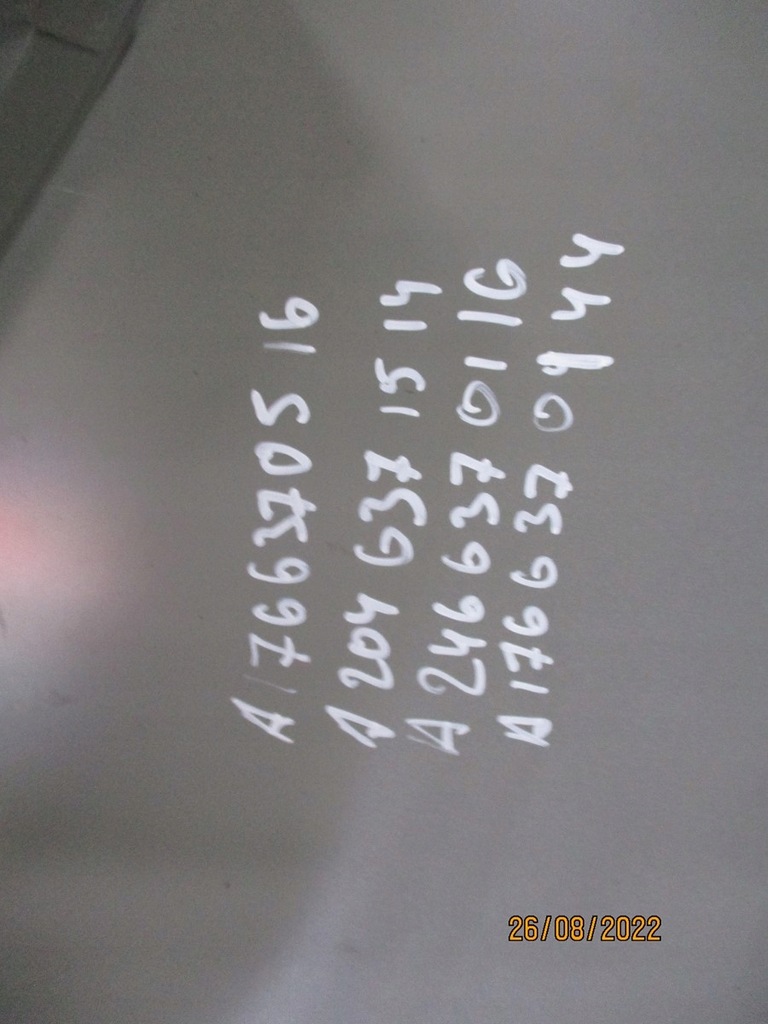 A 1766370516
A 204 637 15 14
A 246 637 01 16
A 176 637 04 44
26/08/2022